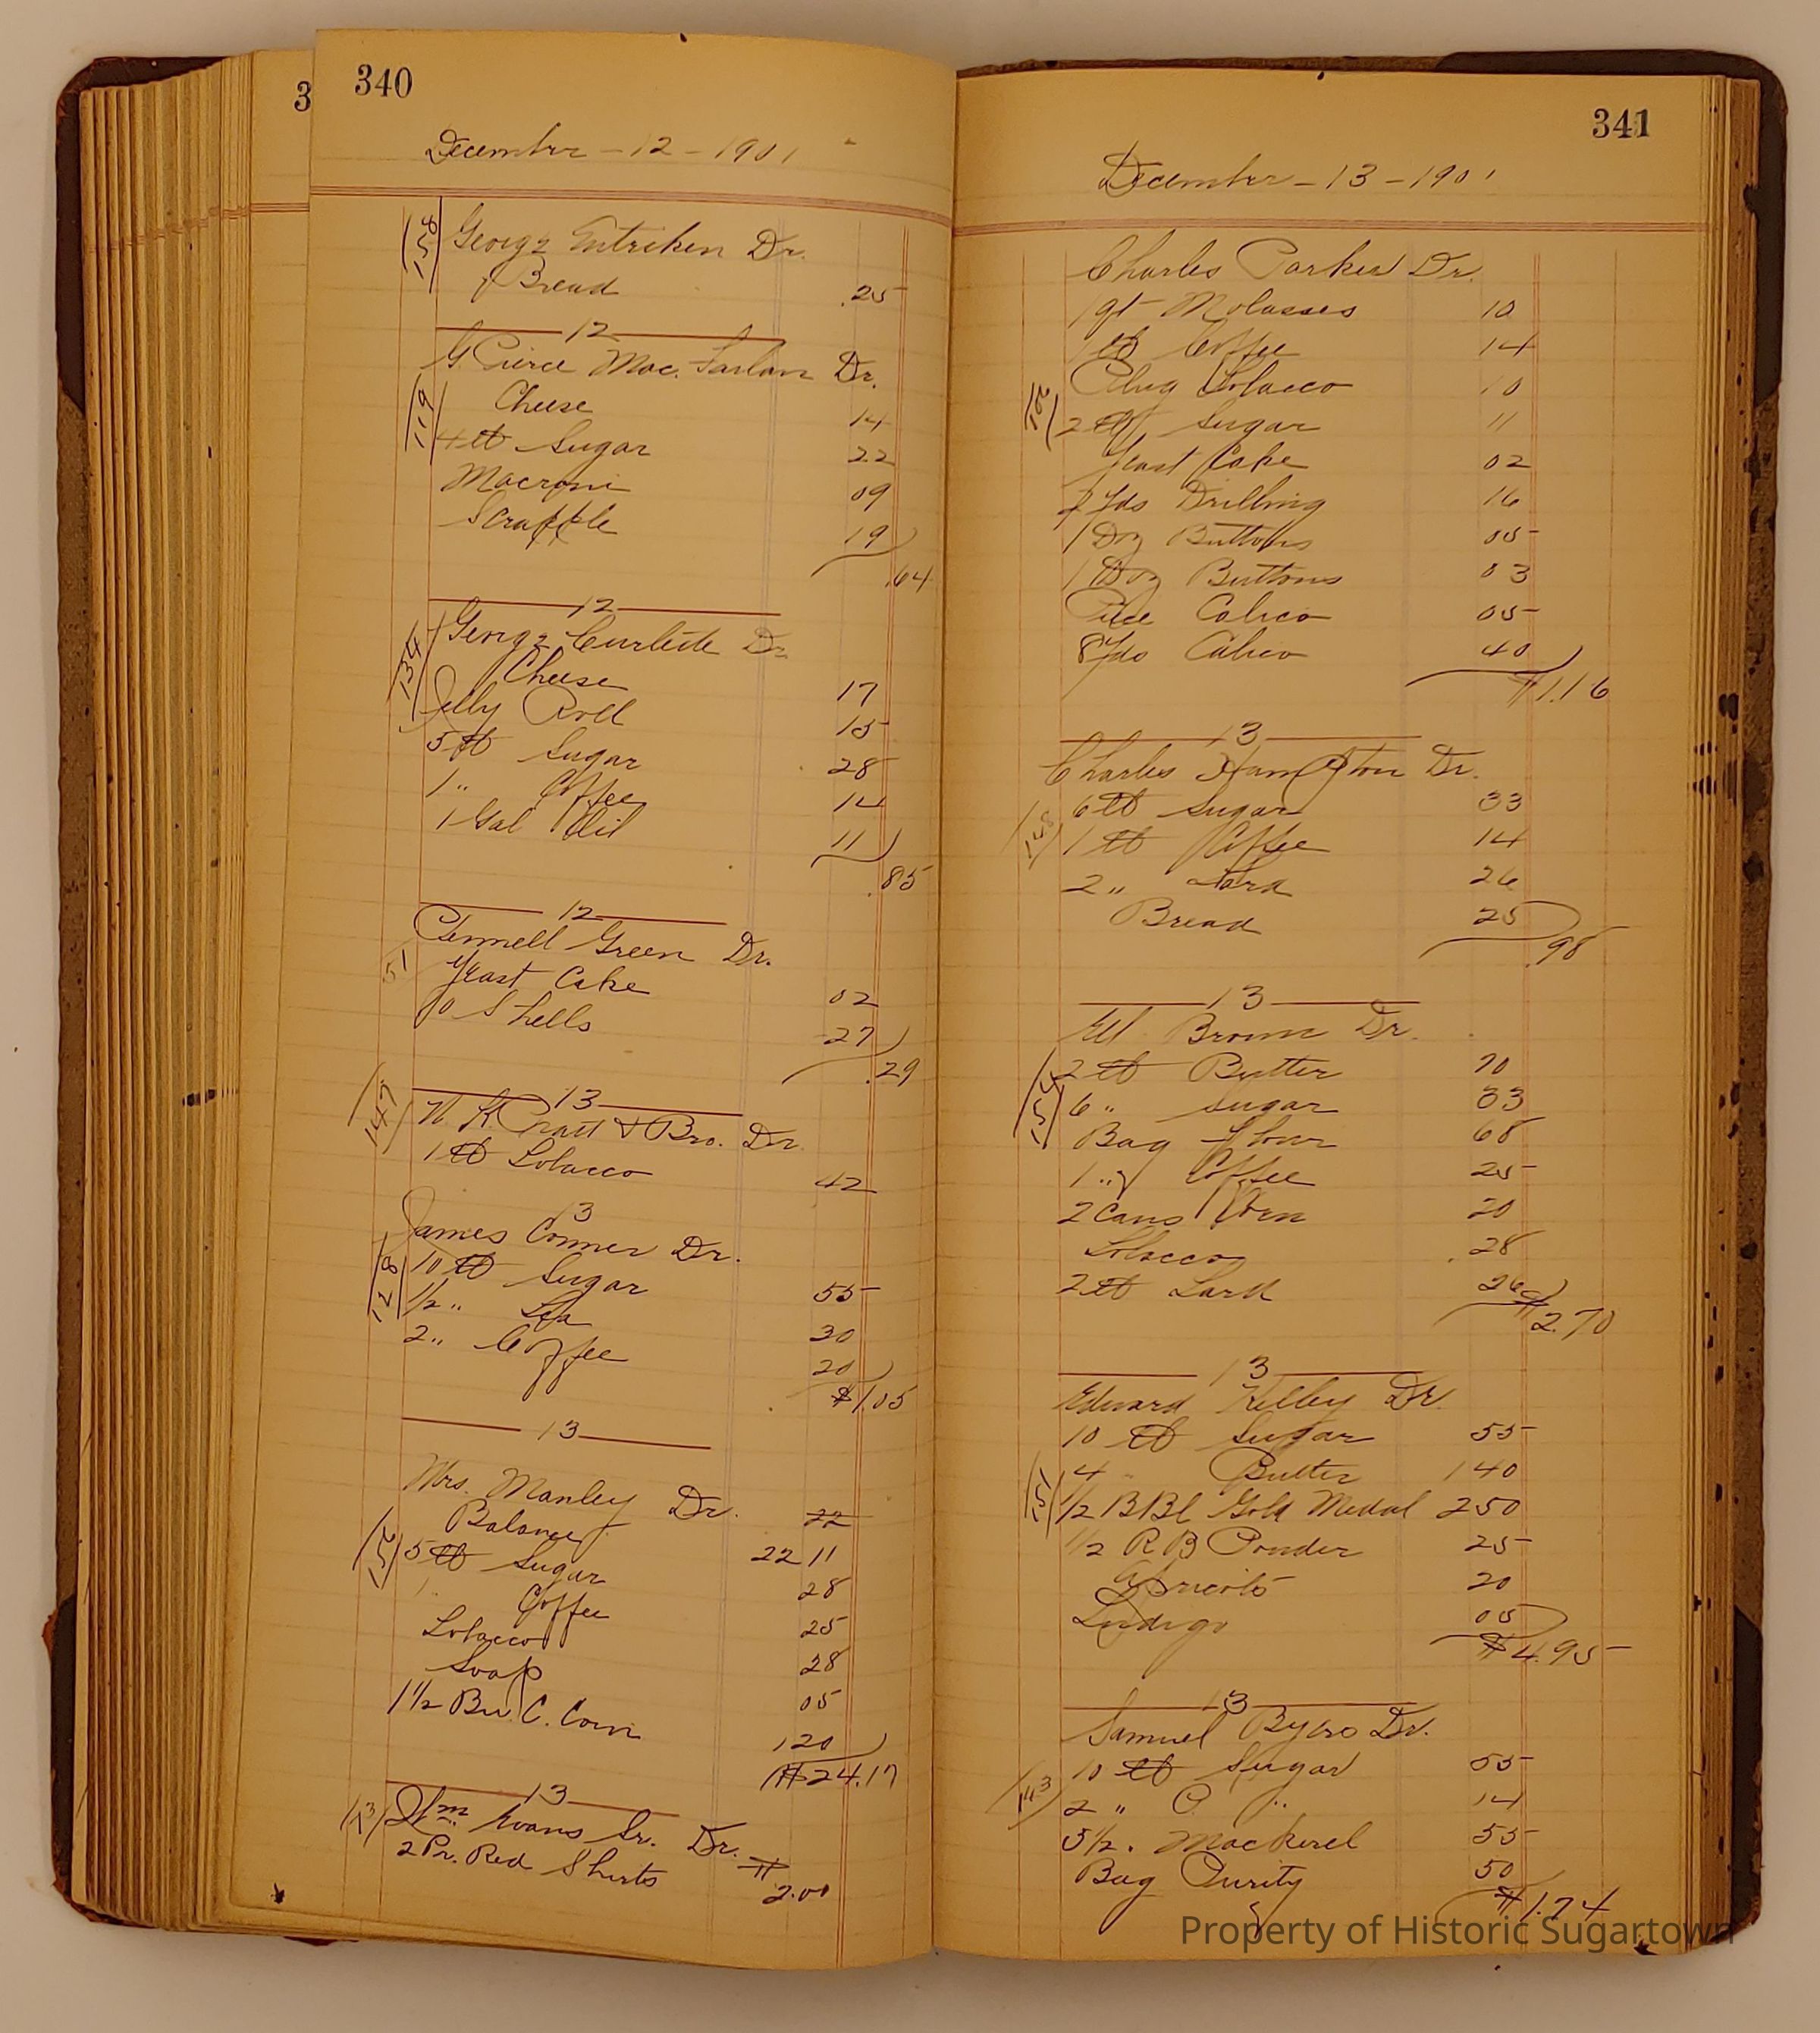 3
340
December - 12 - 1901
158 George Entriken Dr.
Bread .25
12
G. Pierce Mac. Farlan Dr.
119
Cheese 14
4 lb Sugar 22
Macroni 09
Scrapple 19
.64
12
134 George Dr.
Cheese 17
Jelly Roll 15
5 lb Sugar 28
1 " Coffee 14
1 Gal Oil 11
.85
12
Pennell Green Dr.
51 Yeast Cake 02
O Shells 27
.29
13
147 N. H. Pratt & Bro. Dr.
1 lb Tobacco 42
13
James Conner Dr.
128 10 lb Sugar 55
1/2 " Tea 30
2 " Coffee 20
$1.05
13
Mrs. Manley Dr. 22
Balance 22 11
152 5 lb Sugar 28
1 " Coffee 25
Tobacco 28
Soap 05
1 1/2 Bu. C. Corn 1 20
$24.17
13
13 Wm. Evans Sr. Dr.
2 Pr. Red Shirts $2.00
341
December - 13 - 1901
Charles Parker Dr.
1 qt Molasses 10
1 lb Coffee 14
Plug Tobacco 10
102 2 lb Sugar 11
Yeast Cake 02
2 Yds Drilling 16
1 Doz Buttons 05
1 Doz Buttons 03
Calico 05
8 Yds Calico 40
$1.16
13
Charles Hampton Dr.
6 lb Sugar 33
148 1 lb Coffee 14
2 " Lard 26
Bread 25
.98
13
Brown Dr.
2 lb Butter 70
6 " Sugar 33
Bag Flour 68
1 " Coffee 25
2 Cans Corn 20
Tobacco .28
2 lb Lard 26
$2.70
13
Edward Kelley Dr.
10 lb Sugar 55
4 " Butter 1 40
151 1/2 BBl Gold Medal 2 50
1/2 R B Powder 25
Apricots 20
Indigo 05
$4.95
13
Samuel Byers Dr.
10 lb Sugar 55
143 2 " P. " 14
5 1/2 . Mackerel 55
Bag Purity 50
$1.74
Property of Historic Sugartown